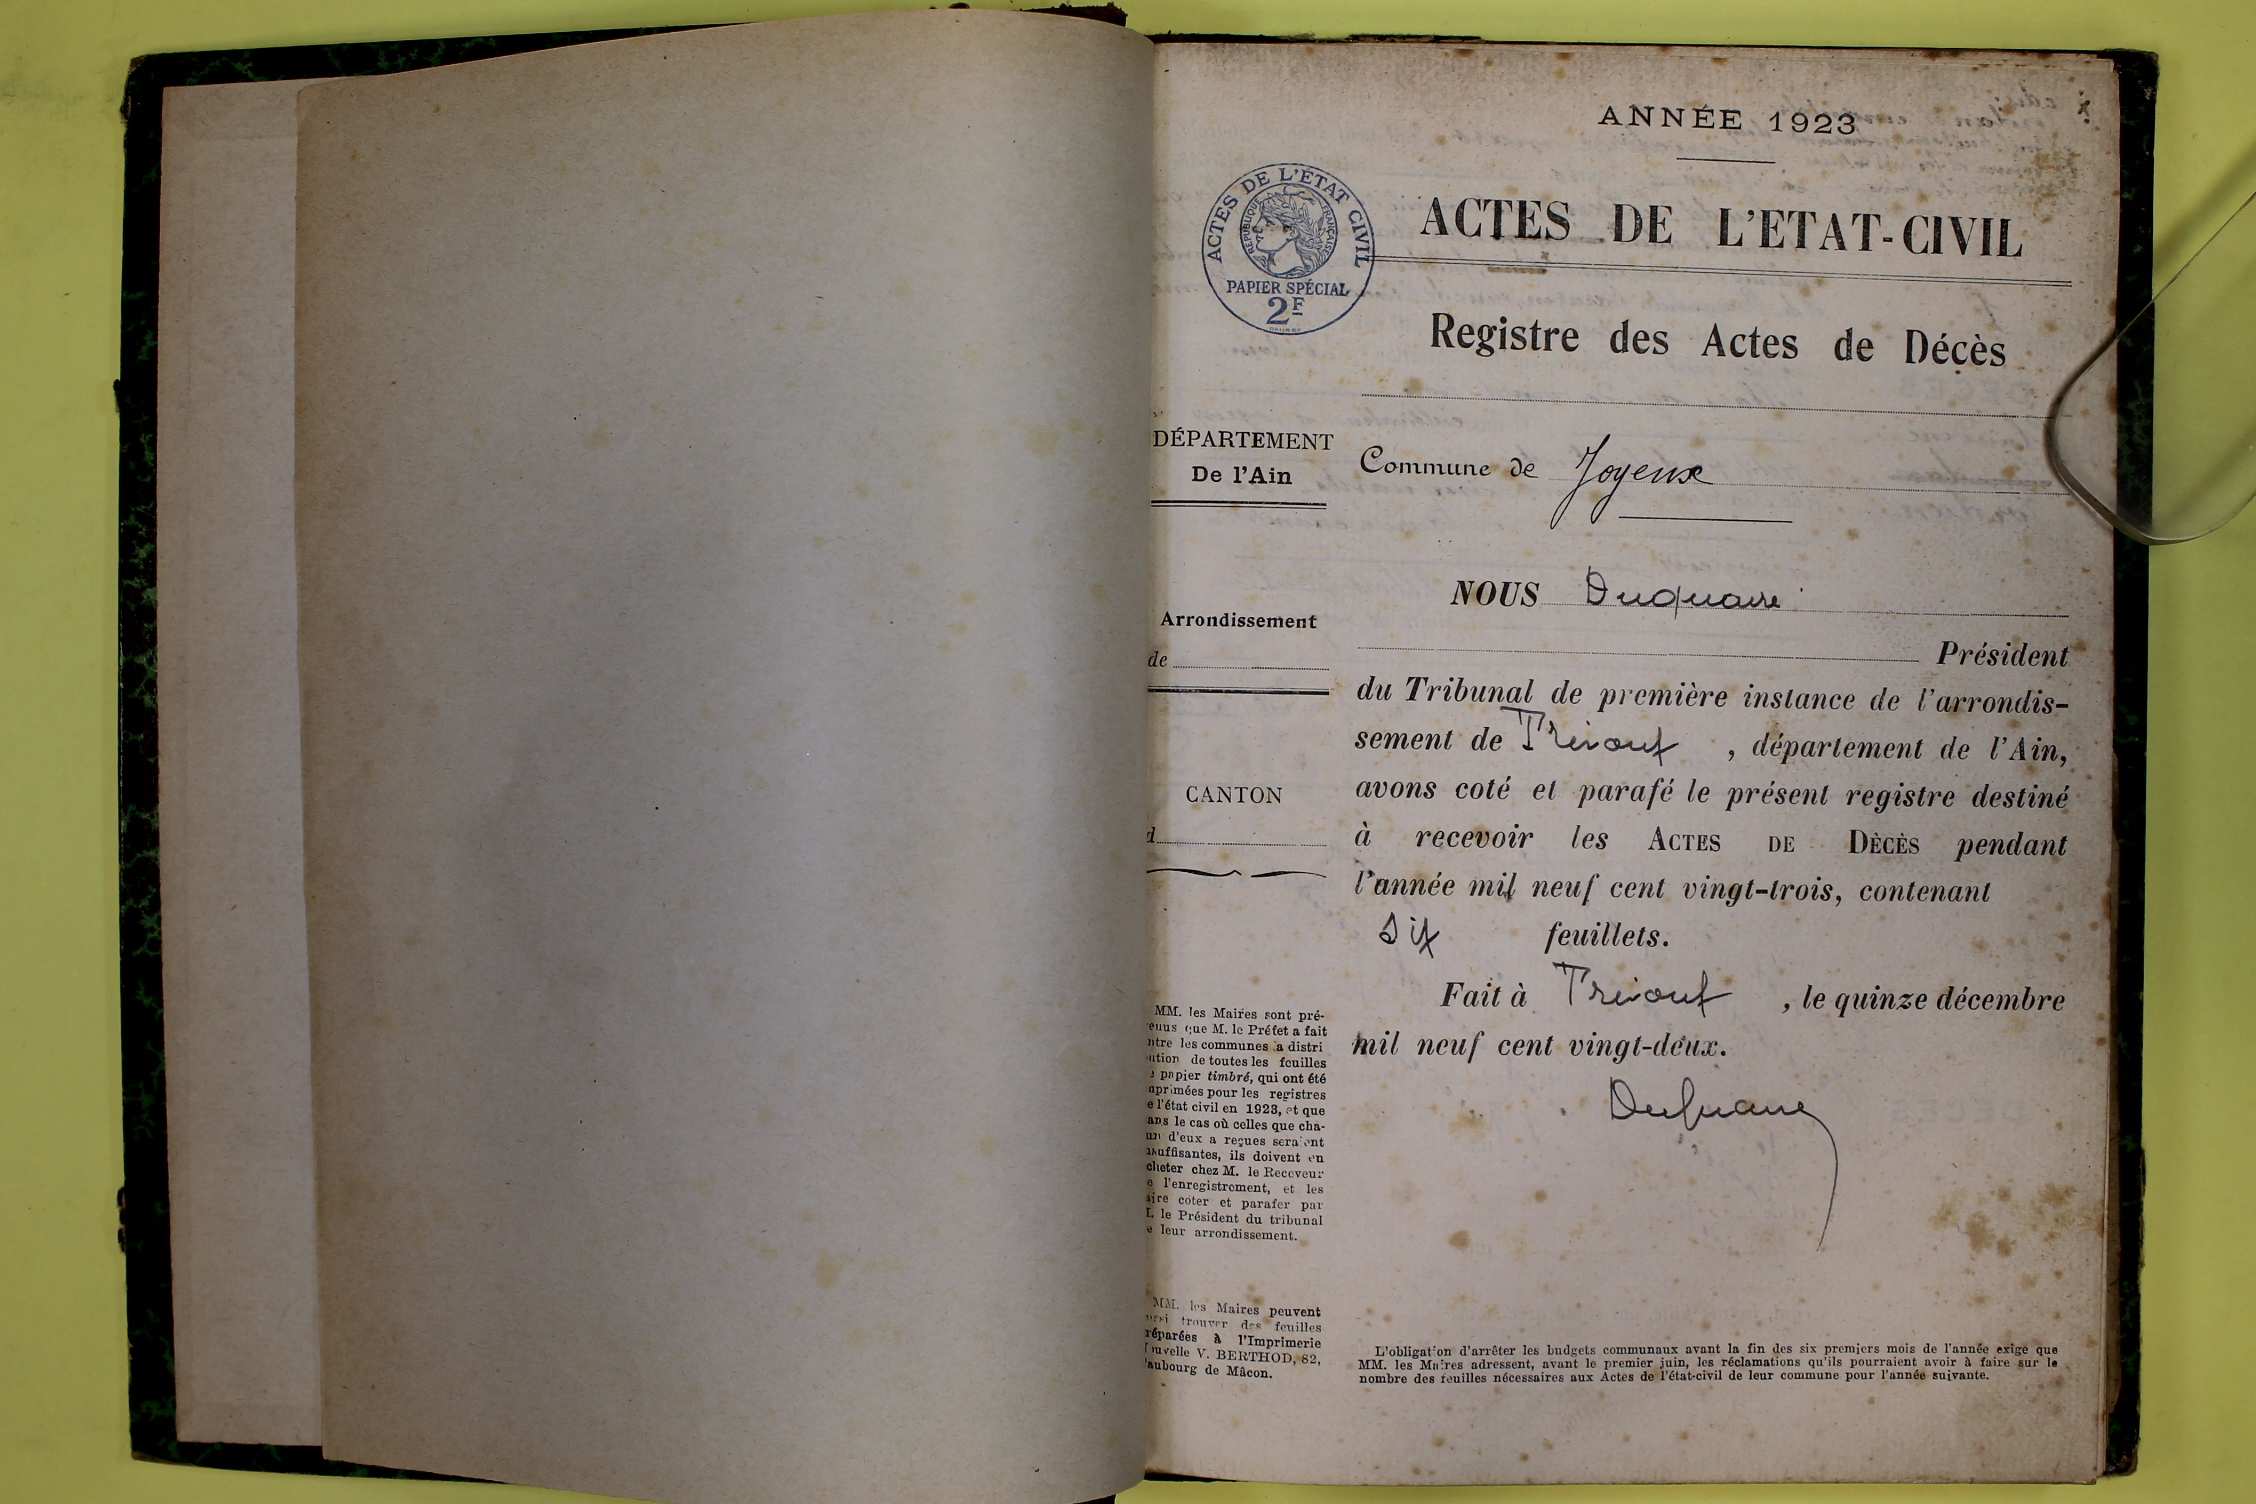 ANNÉE 1923
ACTES DE L'ÉTAT CIVIL
RÉPUBLIQUE FRANÇAISE
PAPIER SPÉCIAL
2F
ACTES DE L'ETAT-CIVIL
Registre des Actes de Décès
DÉPARTEMENT
De l'Ain
Arrondissement
de
CANTON
d
MM. les Maires sont pré-
enus que M. le Préfet a fait
ntre les communes a distri
ution de toutes les feuilles
papier timbré, qui ont été
nprimées pour les registres
e l'état civil en 1923, et que
ans le cas où celles que cha-
un d'eux a reçues seraient
nsuffisantes, ils doivent en
cheter chez M. le Receveur
e l'enregistrement, et les
aire coter et parafer par
M. le Président du tribunal
e leur arrondissement.
MM. les Maires peuvent
ussi trouver des feuilles
réparées à l'Imprimerie
ouvelle V. BERTHOD, 82,
aubourg de Mâcon.
Commune de Joyeux
NOUS Duquaire
Président
du Tribunal de première instance de l'arrondis-
sement de Trévoux , département de l'Ain,
avons coté et parafé le présent registre destiné
à recevoir les ACTES DE DÈCÈS pendant
l'année mil neuf cent vingt-trois, contenant
six feuillets.
Fait à Trévoux , le quinze décembre
mil neuf cent vingt-deux.
Duquaire
L'obligation d'arrêter les budgets communaux avant la fin des six premiers mois de l'année exige que
MM. les Maires adressent, avant le premier juin, les réclamations qu'ils pourraient avoir à faire sur le
nombre des feuilles nécessaires aux Actes de l'état-civil de leur commune pour l'année suivante.